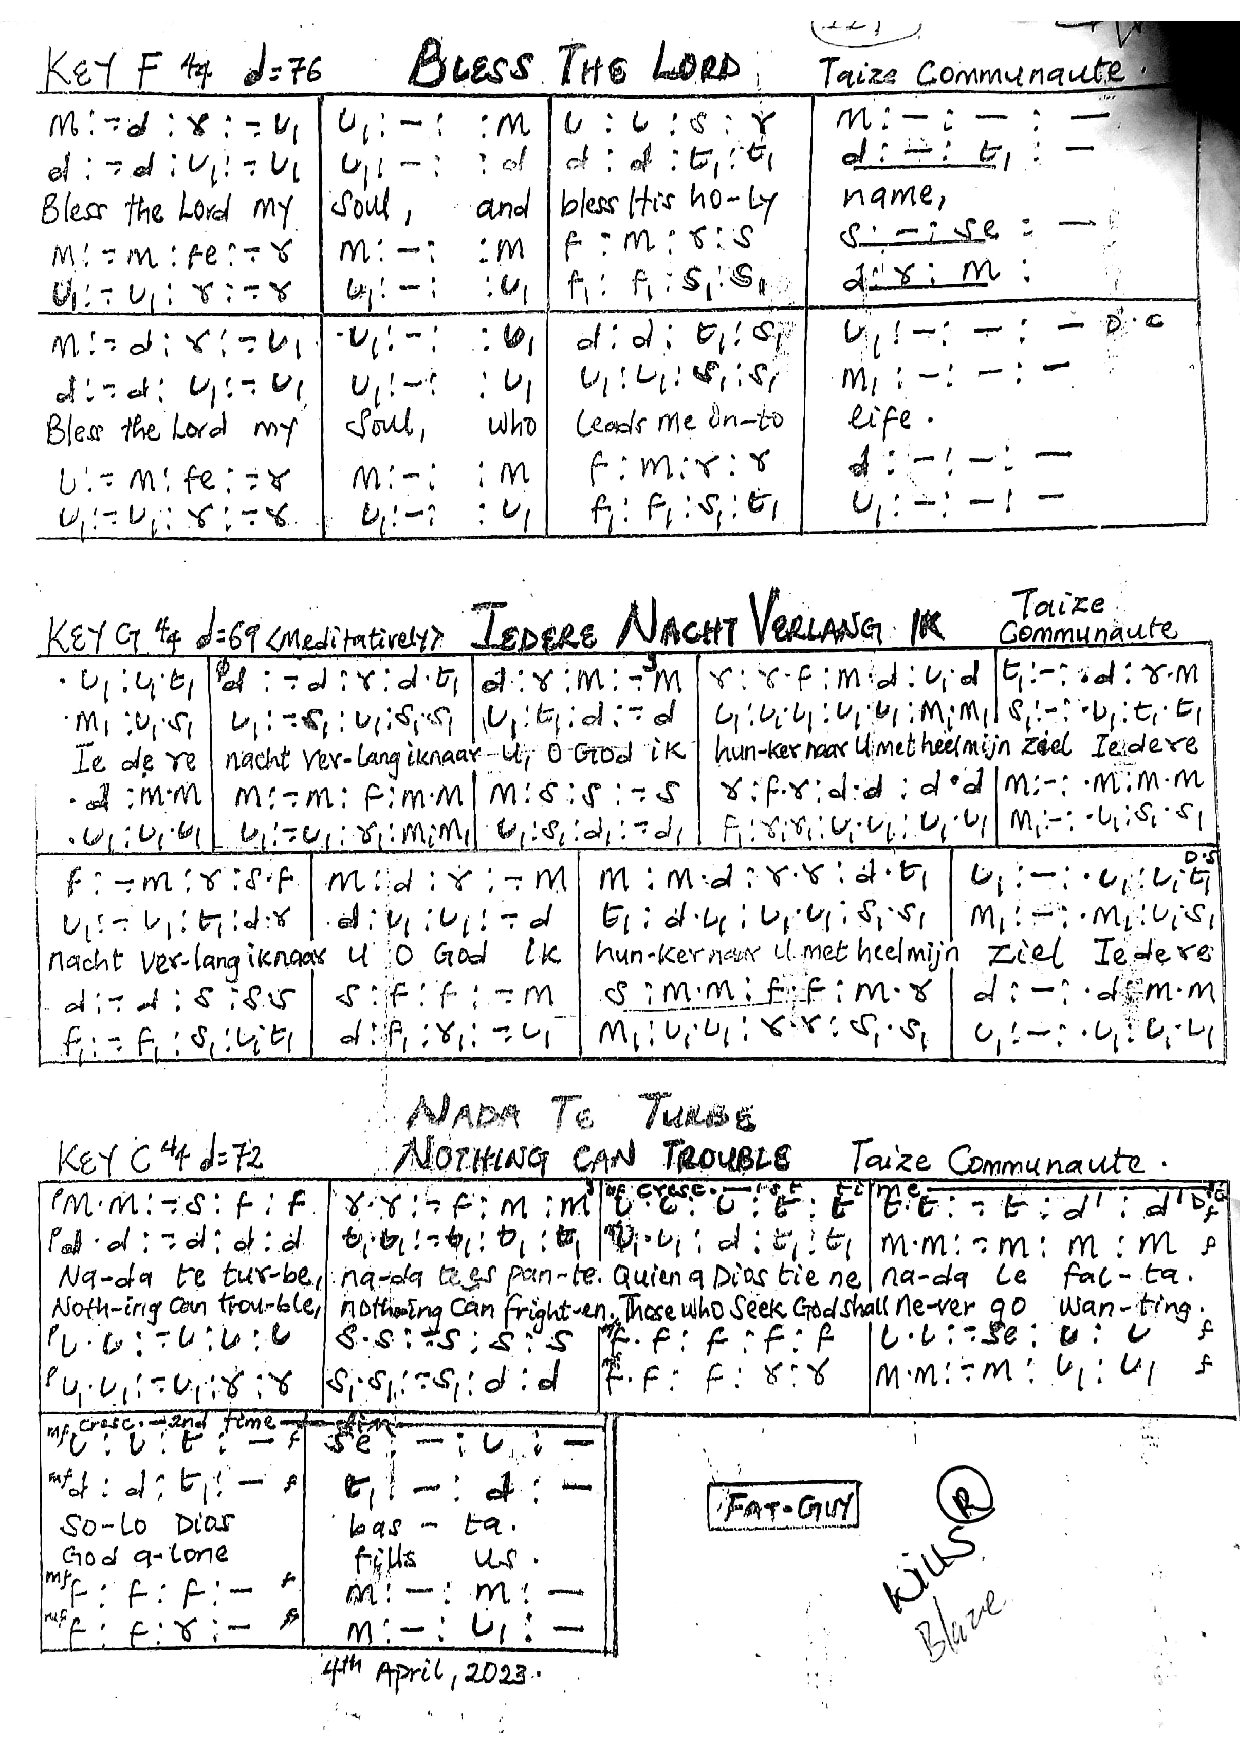 KEY F 4/4 d=76 BLESS THE LORD Taize Communaute.
m:-d:r:-l₁ | l₁:-: :m | l:l:s:r | m:-:-:-
d:-d:l₁:-l₁ | l₁:-: :d | d:d:t₁:t₁ | d:-:t₁:-
Bless the Lord my | soul, and | bless His ho-ly | name,
m:-m:fe:-r | m:-: :m | f:m:r:s | s:-:se:-
l₁:-l₁:r:-r | l₁:-: :l₁ | f₁:f₁:s₁:s₁ | d:r:m:
m:-d:r:-l₁ | l₁:-: :l₁ | d:d:t₁:s₁ | l₁:-:-:- D.C
d:-d:l₁:-l₁ | l₁:-: :l₁ | l₁:l₁:s₁:s₁ | m₁:-:-:-
Bless the Lord my | soul, who | leads me on-to | life.
l:-m:fe:-r | m:-: :m | f:m:r:r | d:-:-:-
l₁:-l₁:r:-r | l₁:-: :l₁ | f₁:f₁:s₁:t₁ | l₁:-:-:-
KEY G 4/4 d=69 <Meditatively> IEDERE NACHT VERLANG IK Taize Communaute
.l₁:l₁.t₁ | d:-d:r:d.t₁ | d:r:m:-m | r:r.f:m.d:l₁.d | t₁:-:.d:r.m
.m₁:l₁.s₁ | l₁:-s₁:l₁:s₁.s₁ | l₁:t₁:d:-d | l₁:l₁.l₁:l₁.l₁:m₁.m₁ | s₁:-:.l₁:t₁.t₁
Ie de re | nacht ver-lang ik naar | U, O God ik | hun-ker naar U met heel mijn | ziel Ie de re
.d:m.m | m:-m:f:m.m | m:s:s:-s | r:f.r:d.d:d.d | m:-:.m:m.m
.l₁:l₁.l₁ | l₁:-l₁:r₁:m₁.m₁ | l₁:s₁:d₁:-d₁ | f₁:r₁.r₁:l₁.l₁:l₁.l₁ | m₁:-:.l₁:s₁.s₁
f:-m:r:s.f | m:d:r:-m | m:m.d:r.r:d.t₁ | l₁:-:.l₁:l₁.t₁ D.S
l₁:-l₁:t₁:d.r | d:l₁:l₁:-d | t₁:d.l₁:l₁.l₁:s₁.s₁ | m₁:-:.m₁:l₁.s₁
nacht ver-lang ik naar | U O God ik | hun-ker naar U met heel mijn | ziel Ie de re
d:-d:s:s.s | s:f:f:-m | s:m.m:f.f:m.r | d:-:.d:m.m
f₁:-f₁:s₁:l₁.t₁ | d:f₁:r₁:-l₁ | m₁:l₁.l₁:r.r:s₁.s₁ | l₁:-:.l₁:l₁.l₁
NADA TE TURBE
KEY C 4/4 d=72 NOTHING CAN TROUBLE Taize Communaute.
mf cresc. — 1st time
p m.m:-s:f:f | r.r:-f:m:m | l.l:l:t:t | t.t:-t:d':d' f
p d.d:-d:d:d | t₁.t₁:-t₁:t₁:t₁ | l₁.l₁:d:t₁:t₁ | m.m:-m:m:m f
Na-da te tur-be, | na-da te es pan-te. | Quien a Dios tie ne | na-da le fal-ta.
Noth-ing can trou-ble, | nothing can fright-en. | Those who seek God shall | ne-ver go wan-ting.
p l.l:-l:l:l | s.s:-s:s:s | mf f.f:f:f:f | l.l:-se:l:l f
p l₁.l₁:-l₁:r:r | s₁.s₁:-s₁:d:d | mf f.f:f:r:r | m.m:-m:l₁:l₁ f
mf cresc. — 2nd time — dim
mf l:l:t:- f | se:-:l:-
mf d:d:t₁:- f | t₁:-:d:-
So-lo Dios | bas-ta.
God a-lone | fills us.
mf f:f:f:- f | m:-:m:-
mf f:f:r:- f | m:-:l₁:-
FAT-GUY
R
Kills
Blaze
4th April, 2023.